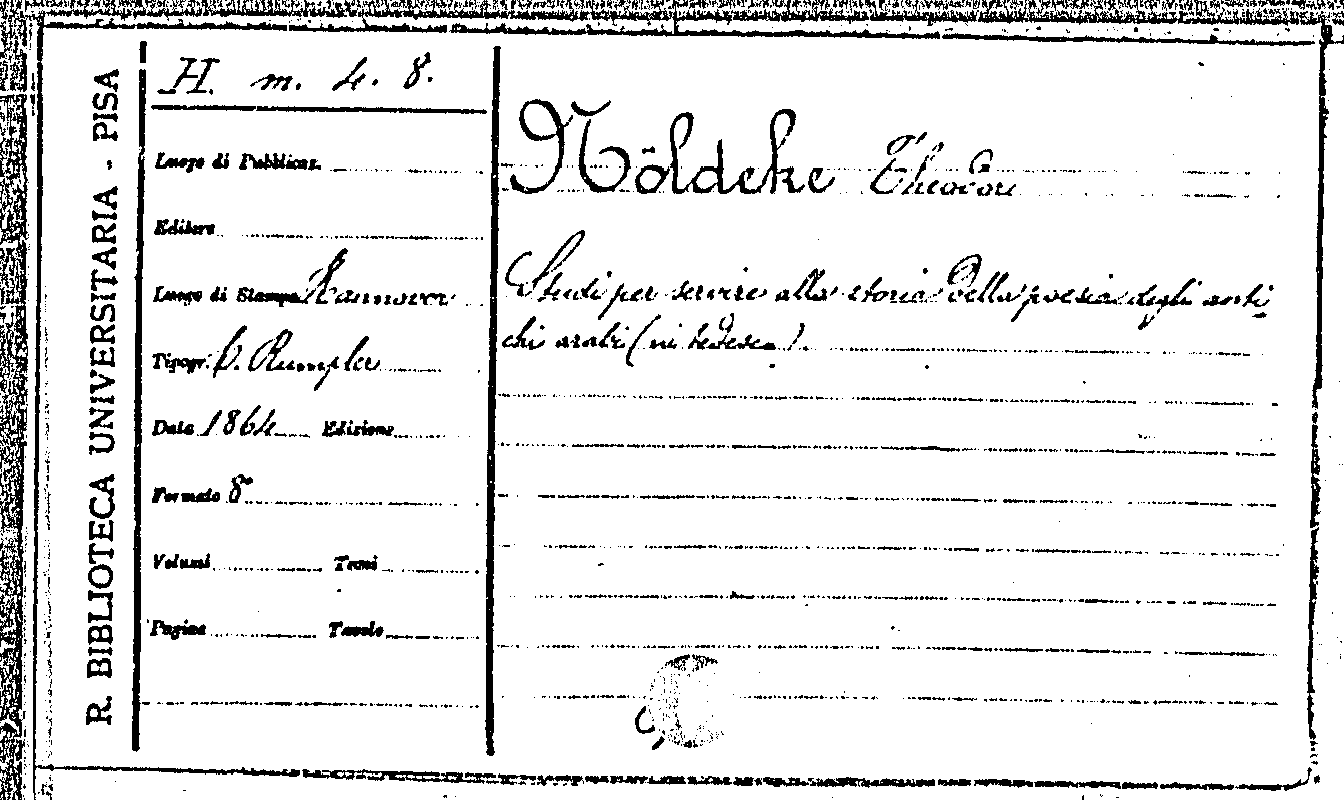 R. BIBLIOTECA UNIVERSITARIA - PISA
H. m. 4. 8.
Luogo di Pubblicaz.
Editore
Luogo di Stampa Hannover
Tipogr. C. Rümpler
Data 1864 Edizione
Formato 8°
Volumi Tomi
Pagine Tavole
Nöldeke Theodor
Studi per servire alla storia della poesia degli anti-
chi arabi (in tedesco).